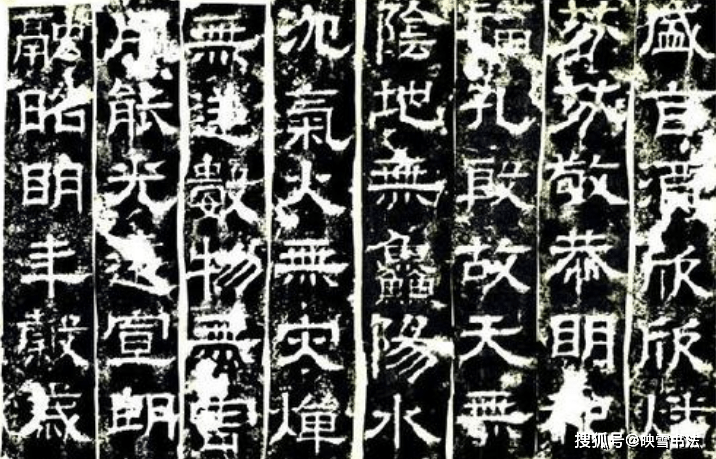 盛旨酒欣欣燔
芬芬敬恭明祀
福孔殷故天無
陰地無鱻陽水
沉氣火無灾燀
無逆數物無害
用能光遠宣朗
融昭明年穀歲
搜狐号@映雪书法